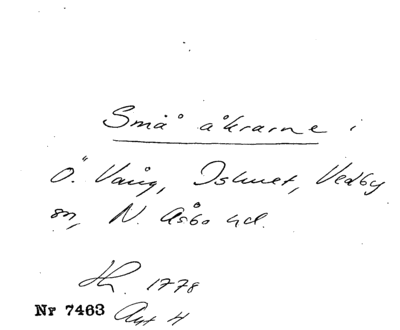 Små åkrarne i
Ö. Vång, Ishuset, Vedby
sn, N. Åsbo hd.
1778
Nr 7463 Akt 4